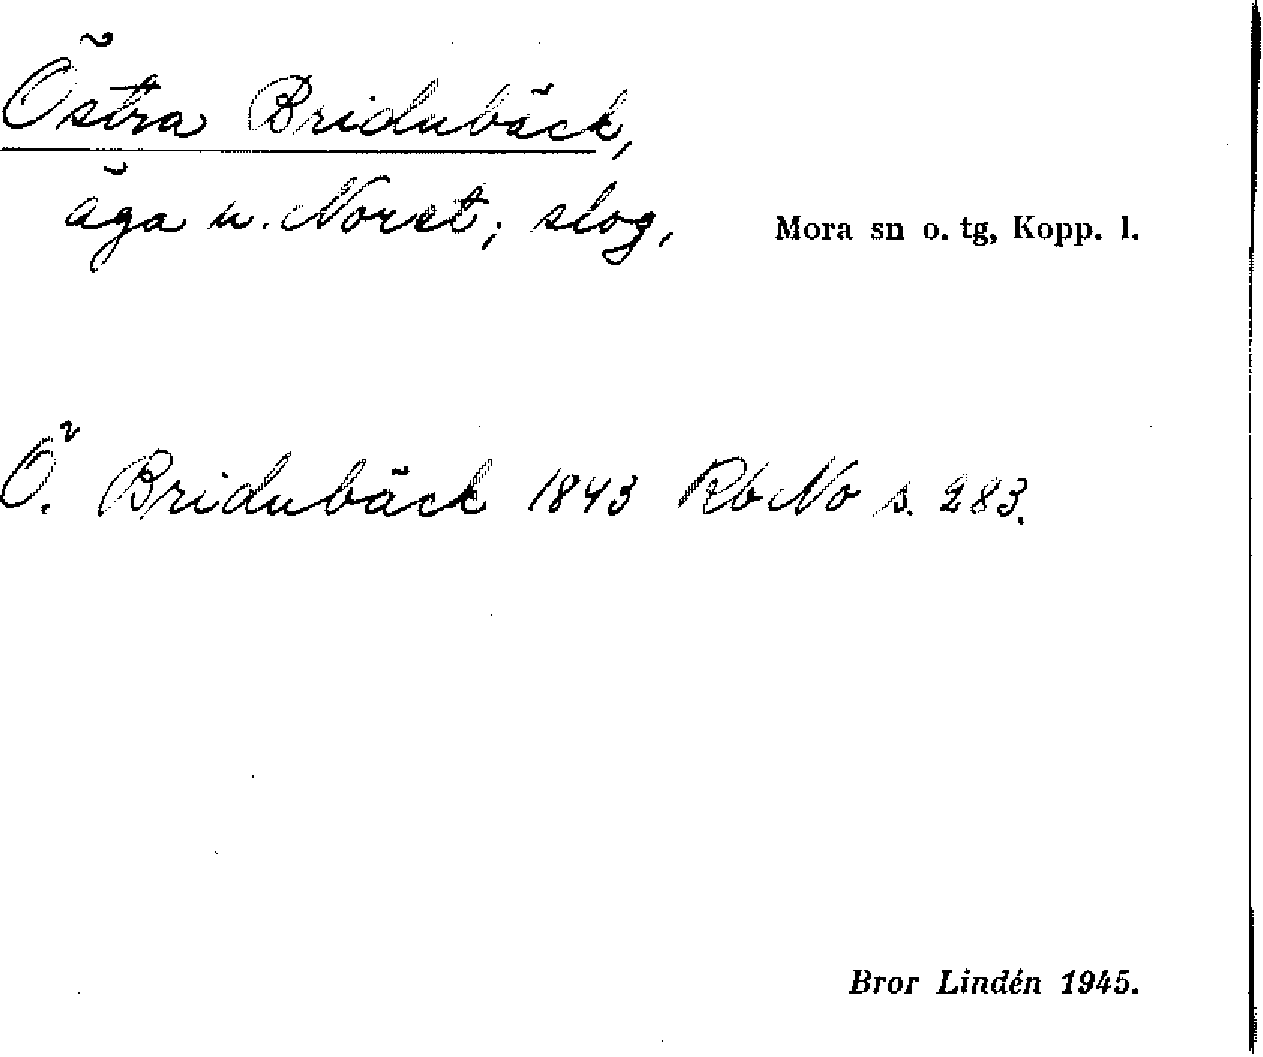 Östra Bridubäck,
äga u. Noret; slog. Mora sn o. tg, Kopp. l.
Ö. Bridubäck 1843 Rb No s. 283.
Bror Lindén 1945.